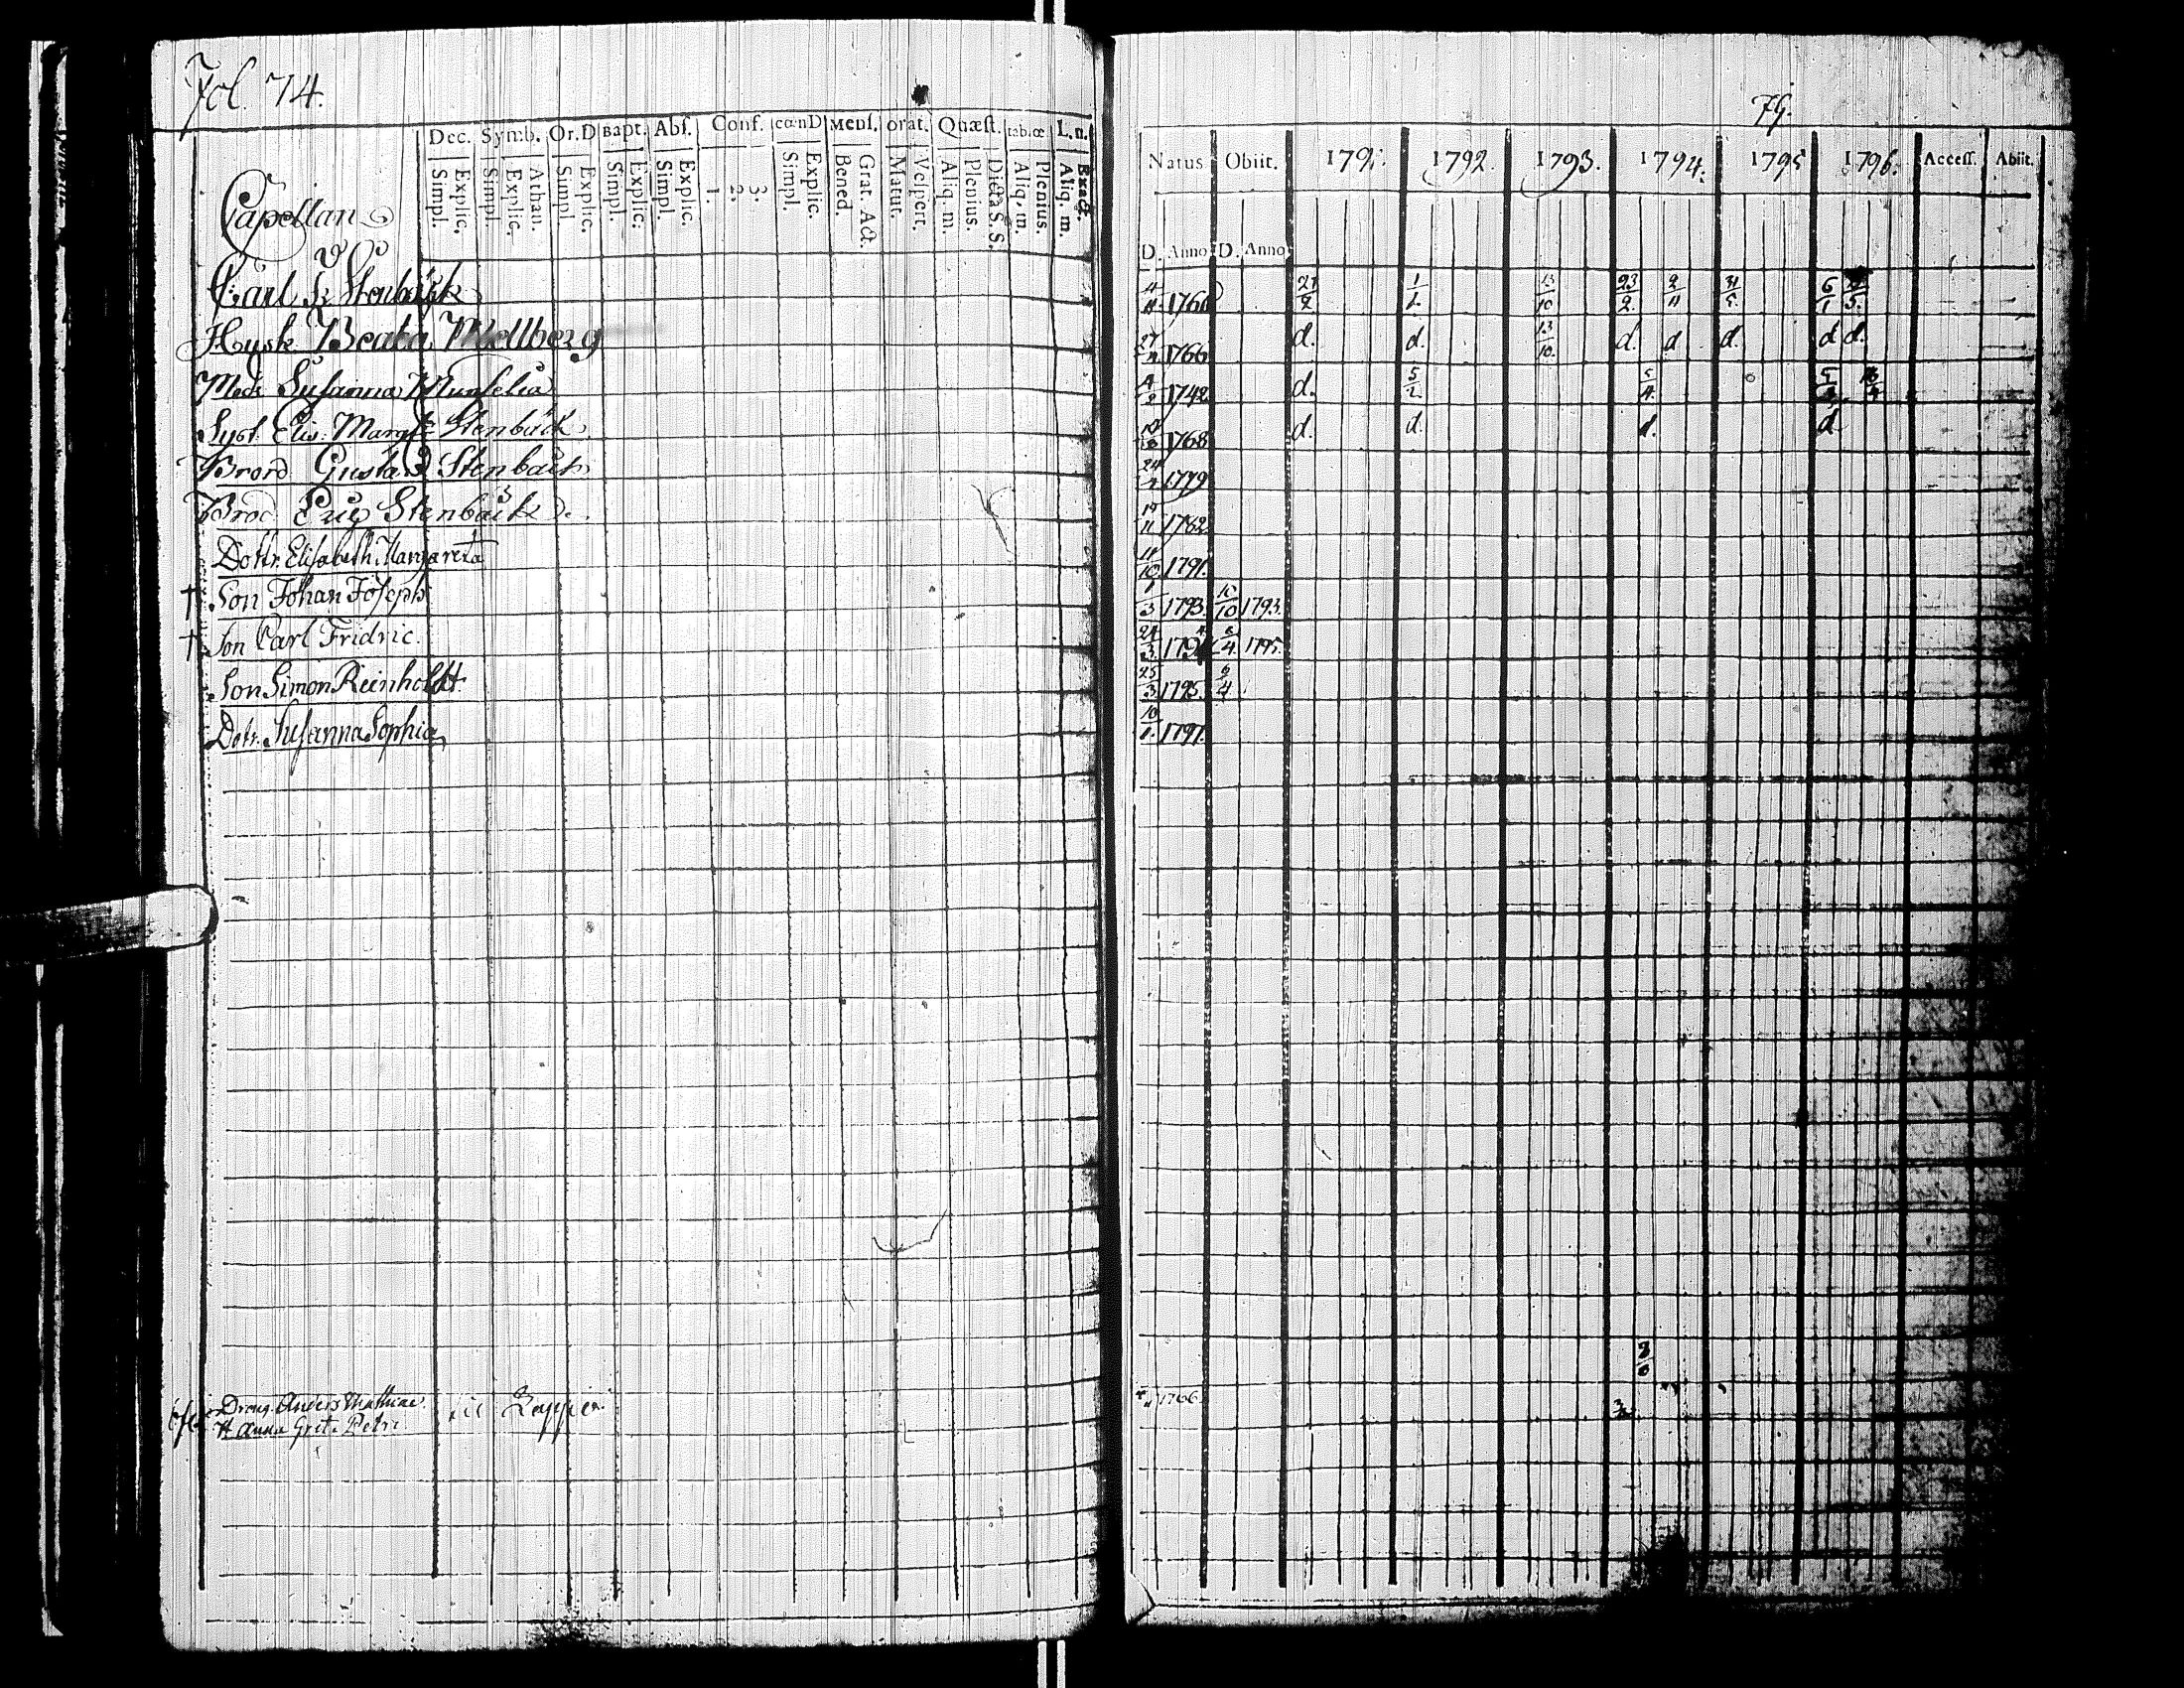 Fol. 74.
Dec. Symb. Or.D Bapt. Abſ. Conf. cœnD Menſ. orat. Quæſt. tab.œ L.n.
Simpl. Explic. Simpl. Explic. Athan. Simpl. Explic. Simpl. Explic. Simpl. Explic. 1. 2. 3. Simpl. Explic. Bened. Grat. Act. Matut. Veſpert. Aliq. m. Plenius. Dicta S. S. Aliq. m. Plenius. Aliq. m. Exact.
Capellan
Carl Fr Stenbäck
Hust. Beata Mellberg
Mod. Susanna
Syst. Elis. Margt. Stenbäck
Brord. Gustav Stenbäck
Brod Eric Stenbäck
Dottr. Elisabeth Margareta
† Son Johan Joseph
† Son Carl Fridric.
Son Simon Reinholdt
Dotr. Susanna Sophia
Dreng. Anders Matthiae
H Anna Greta Petri
79.
Natus Obiit. 1791. 1792. 1793. 1794. 1795 1796. Acceſſ. Abiit.
D. Anno D. Anno
4/11 1760 21/2 1/1 13/10 23/2. 2/11 31/5. 6/1
27/11 1766 d. d. 13/10. d. d d. d d.
1742 d. 5/2. 5/4.
1768 d. d. d. d
24 1779
1782
11/10 1791.
1/3 1793. 10/10 1793.
24/3 6/4 1795.
25/3 1795. 6/4
10/1. 1797.
1766